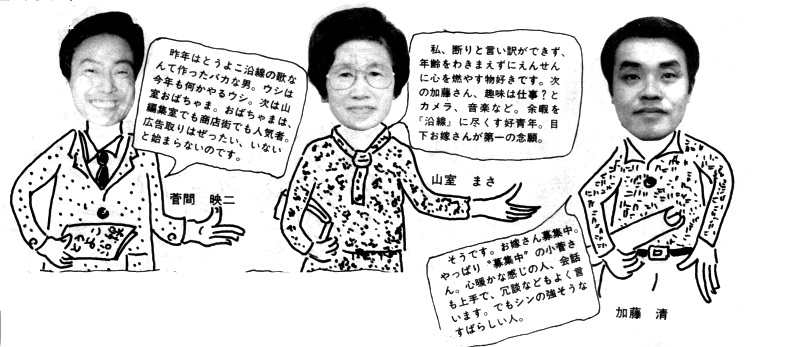 昨年はとうよこ沿線の歌な
んて作ったバカな男。ウシは
今年も何かやるウシ。次は山
室おばちゃま。おばちゃまは、
編集室でも商店街でも人気者。
広告取りはぜったい、いない
と始まらないのです。
菅間　映二
私、断りと言い訳ができず、
年齢をわきまえずにえんせん
に心を燃やす物好きです。次
の加藤さん、趣味は仕事？と
カメラ、音楽など。余暇を
『沿線』に尽くす好青年。目
下お嫁さんが第一の念願。
山室　まさ
そうです。お嫁さん募集中。
やっぱり〝募集中〟の小菅さ
ん。心暖かな感じの人、会話
も上手で、冗談などもよく言
います。でもシンの強そうな
すばらしい人。
加藤　清